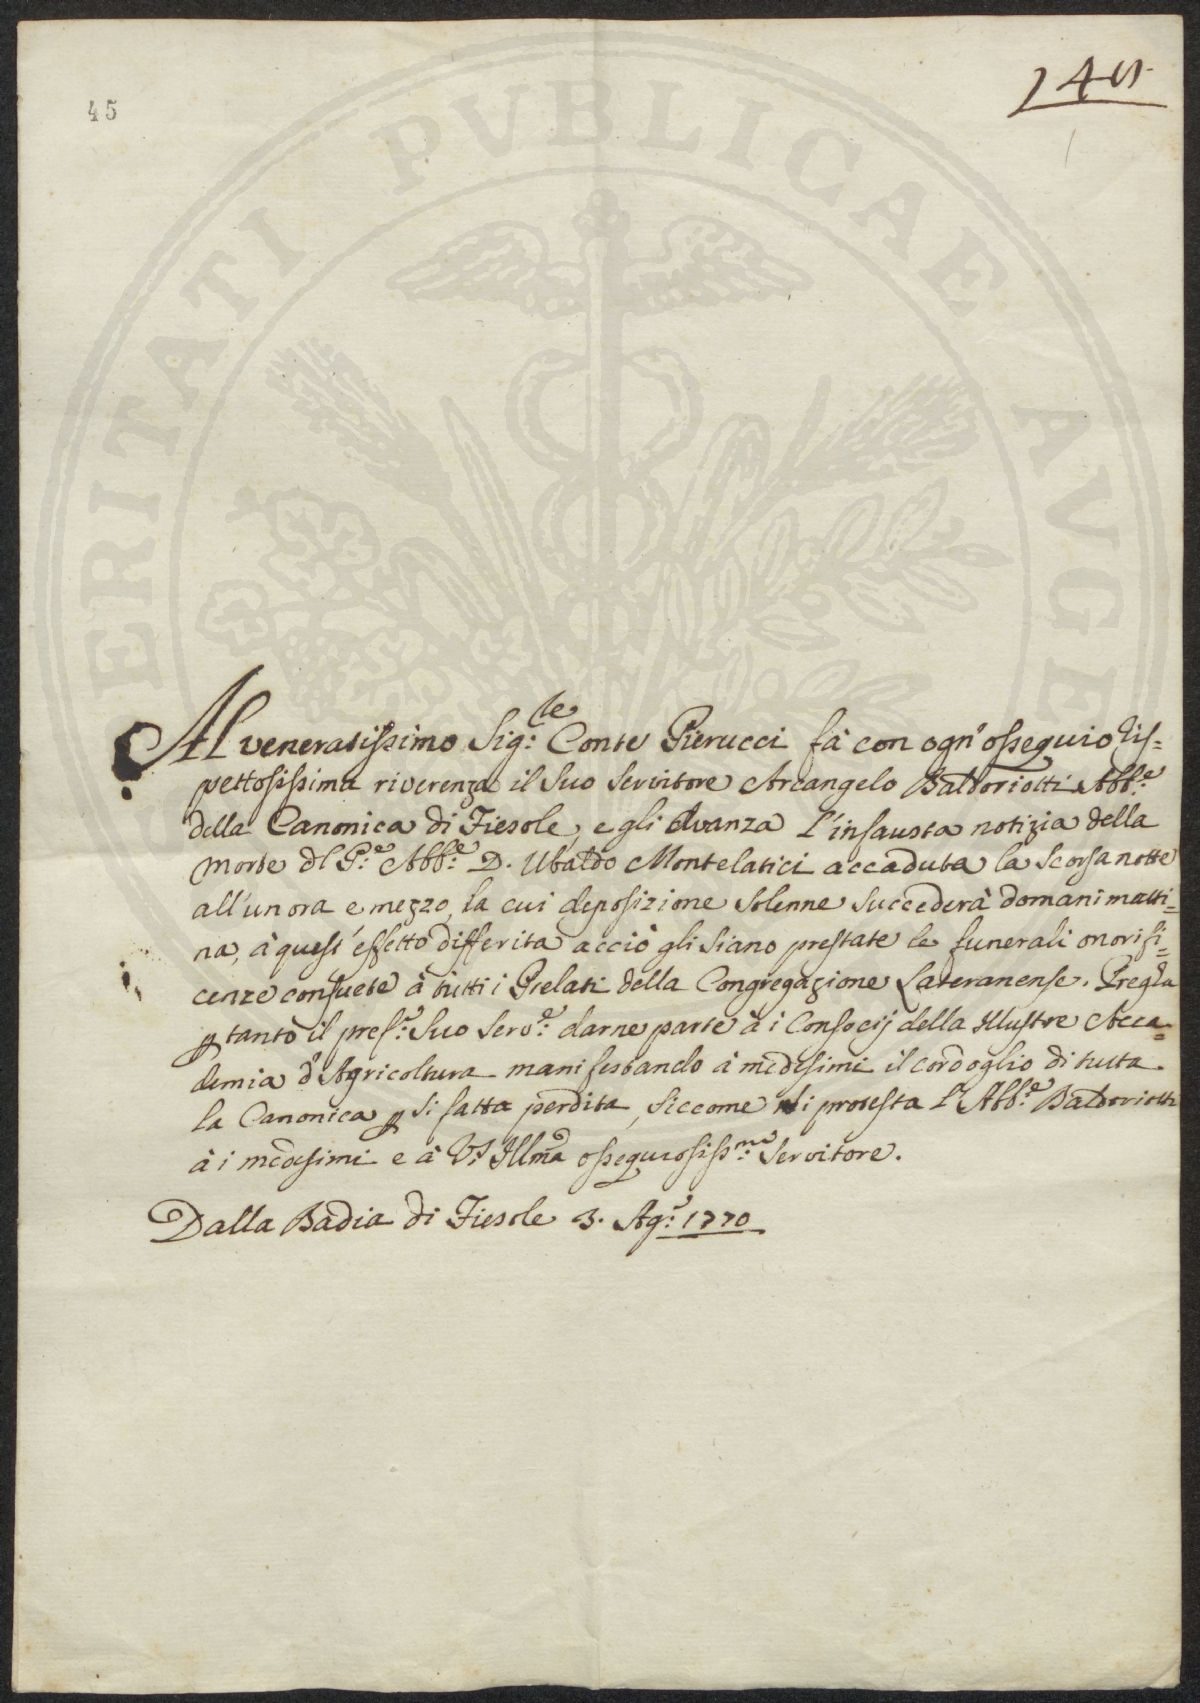 45
PVBLICAE
ERITATI
AVGE
Al veneratissimo Sig:le Conte Pierucci fà con ogn' ossequio ris=
pettosissima riverenza il Suo Servitore Arcangelo Baldoriotti Abb:e
della Canonica di Fiesole, e gli avanza l'infausta notizia della
morte dl P:e Abb:e D. Ubaldo Montelatici accaduta la scorsa notte
all'un ora e mezzo, la cui deposizione solenne succederà domani matti=
na, à quest' effetto differita acciò gli siano prestate le funerali onorifi=
cenze consuete à tutti i Prelati della Congregazione Lateranense. Prega
p tanto il pres:e Suo Serv:e darne parte à i Consocij della Illustre Acca=
demia d'Agricoltura manifestando à medesimi il cordoglio di tutta
la Canonica p si fatta perdita, siccome si protesta l'Abb:e Baldoriotti
à i medesimi e à V.S Illma ossequiosiss:mo Servitore.
Dalla Badia di Fiesole 3. Ag:o 1770